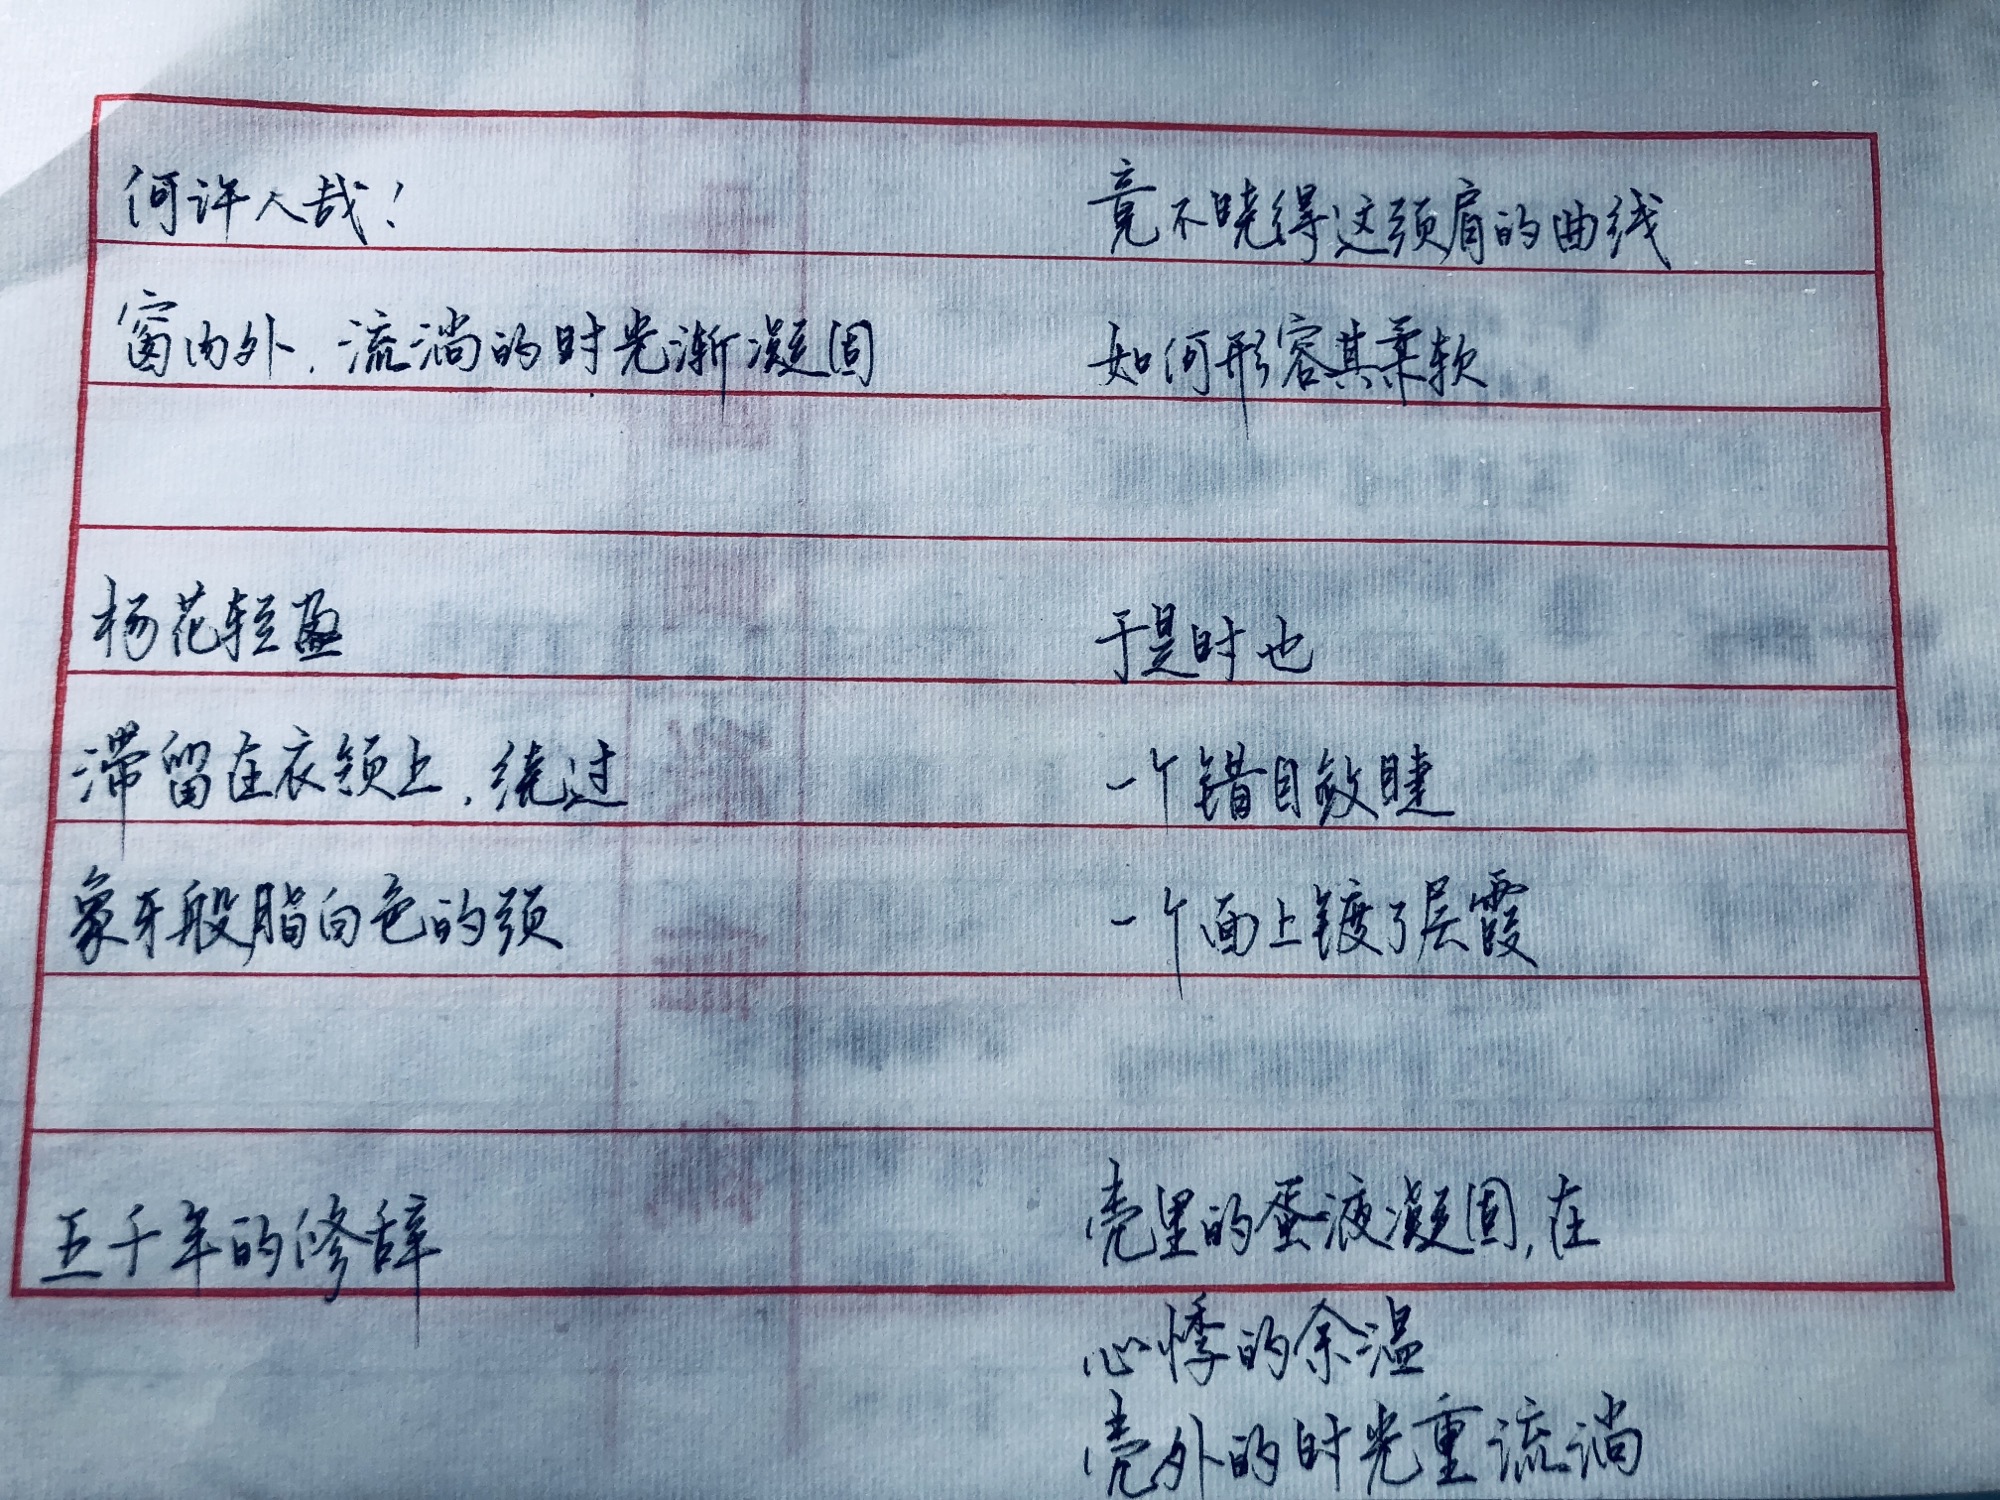 何许人哉！
窗内外，流淌的时光渐凝固
杨花轻盈
滞留在衣领上，绕过
象牙般脂白色的颈
五千年的修辞
竟不晓得这颈肩的曲线
如何形容其柔软
于是时也
一个错目敛睫
一个面上镀了层霞
壳里的蛋液凝固，在
心悸的余温
壳外的时光重流淌